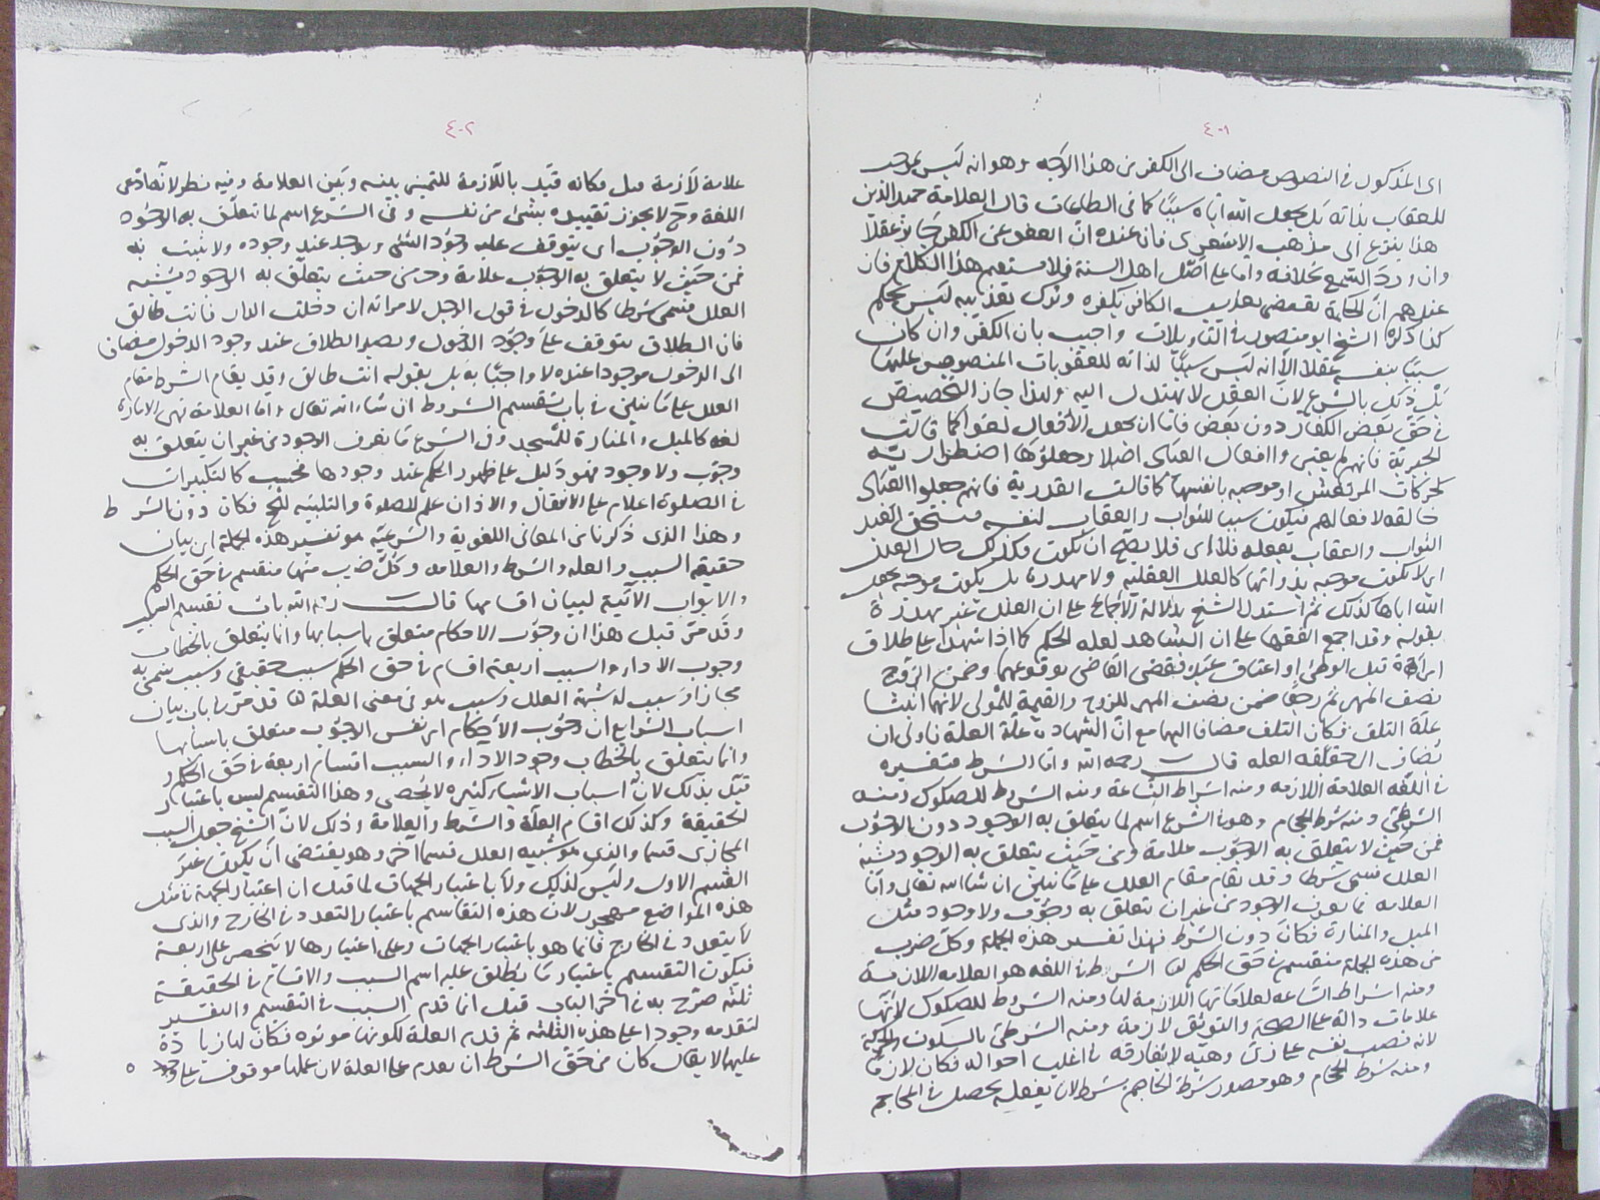 ٤٠١
الى المذكور في النصوص مضاف الى الكفر من هذا الوجه وهو انه ليس بموجب
للعقاب بذاته بل بجعل الله اياه سببا كما في الطاعات قال العلامة حميد الدين
هذا ينزع الى مذهب الاشعري فان عنده ان العفو عن الكفر جايز عقلا
وان ورد السمع بخلافه واما على اصل اهل السنة فلا يستقيم هذا الكلام فان
عندهم ان الحكمة تقتضي تعذيب الكافر بكفره وترك تعذيبه ليس بحكم
كذا ذكره الشيخ ابو منصور في التاويلات واجيب بان الكفر وان كان
سببا بنفسه عقلا الا انه ليس سببا لذاته للعقوبات المنصوص عليها
بل ذلك بالشرع لان العقل لا يهتدى اليه ولهذا جاز التخصيص
في حق بعض الكفار دون بعض فاما ان يجعل الافعال لغوا كما قالت
الجبرية فانهم لم يعتبروا افعال العباد اصلا وجعلوها اضطرارية
كحركات المرتعش او موجبة بانفسها كما قالت القدرية فانهم جعلوا العباد
خالقة لافعالهم فيكون سببا للثواب والعقاب لنفسه فيستحق العبد
الثواب والعقاب بفعله فلا اى فلا يصح ان يكون فكذلك حال العلل
اى لا يكون موجبة بذواتها كالعلل العقلية ولا مهدرة بل يكون موجبة بجعل
الله اياها كذلك ثم استدل الشيخ بدلالة الاجماع على ان العلل غير مهدرة
بقوله وقد اجمع الفقهاء على ان الشاهد لعلة الحكم كما اذا شهدا على طلاق
امراة قبل الوطئ او اعتاق عبد فقضى القاضي بوقوعهما وضمن الزوج
نصف المهر ثم رجعا ضمن نصف المهر للزوج والقيمة للمولى لانهما انشا
علة التلف فكان التلف مضافا اليها مع ان الشهادة علة العلة فاولى ان
يضاف الى حقيقة العلة قال رحمه الله واما الشرط فتفسيره
في اللغة العلامة اللازمة ومنه اشراط الساعة ومنه الشروط للصكوك ومنه
الشرطي ومنه شرط الحجام وهو في الشرع اسم لما يتعلق به الوجود دون الوجوب
فمن حيث لا يتعلق به الوجوب علامة ومن حيث يتعلق به الوجود يشبه
العلل فسمى شرطا وقد يقام مقام العلل على ما نبين ان شا الله تعالى واما
العلامة فما يعرف الوجود من غير ان يتعلق به وجوب ولا وجود مثل
الميل والمنارة فكان دون الشرط فهذا تفسير هذه الجملة وكل ضرب
من هذه الجملة منقسم في حق الحكم لما الشرط في اللغة هو العلامة اللازمة
ومنه اشراط الساعة لعلاماتها اللازمة لها ومنه الشروط للصكوك لانها
علامات دالة على الصحة والتوثق لازمة ومنه الشرطي بالسكون والحركة
لانه نصب نفسه على زي وهيئة لا يفارقه في اغلب احواله فكان لازما
ومنه شرط الحجام وهو مصدر شرط الحاجم يشرط لان بفعله يحصل في المحاجم
٤٠٢
علامة لازمة قيل فكانه قيد باللازمة للتمييز بينه وبين العلامة وفيه نظر لانه
اللغة وح لا يجوز تقييده بشئ من نفسه وفي الشرع اسم لما تعلق به الوجود
دون الوجوب اى يتوقف عليه وجود الشئ ويوجد عند وجوده ولا يثبت به
فمن حيث لا يتعلق به الوجوب علامة ومن حيث يتعلق به الوجود يشبه
العلل فسمى شرطا كالدخول في قول الرجل لامراته ان دخلت الدار فانت طالق
فان الطلاق يتوقف على وجود الدخول ويصير الطلاق عند وجود الدخول مضافا
الى الدخول موجودا عنده لا واجبا به بل بقوله انت طالق وقد يقام الشرط مقام
العلل على ما نبين في باب تقسيم الشروط ان شاء الله تعالى واما العلامة فهى الامارة
لغة كالميل والمنارة للمسجد وفي الشرع ما يعرف الوجود من غير ان يتعلق به
وجوب ولا وجود فهو دليل على ظهور الحكم عند وجودها فحسب كالتكبيرات
في الصلوة اعلام على الانتقال والاذان علم للصلوة والتلبية للحج فكان دون الشرط
وهذا الذى ذكرنا من المعاني اللغوية والشرعية هو تفسير هذه الجملة اى بيان
حقيقة السبب والعلة والشرط والعلامة وكل ضرب منها منقسم في حق الحكم
والابواب الاتية لبيان اقسامها قال رحمه الله باب تقسيم السبب
وقد مر قبل هذا ان وجوب الاحكام متعلق باسبابها وانما يتعلق بالخطاب
وجوب الاداء والسبب اربعة اقسام في حق الحكم سبب حقيقي وسبب يسمى به
مجازا وسبب له شبهة العلل وسبب هو في معنى العلة لما قد مر في باب بيان
اسباب الشرايع ان وجوب الاحكام اى نفس الوجوب متعلق باسبابها
وانما يتعلق بالخطاب وجود الاداء والسبب اقسام اربعة في حق الحكم
قيد بذلك لان اسباب الاشياء كثيرة لا تحصى وهذا التقسيم ليس باعتبار
الحقيقة وكذلك اقسام العلة والشرط والعلامة وذلك لان الشيخ جعل السبب
المجازى قسما والذى هو شبيه العلل قسما اخر وهو يقتضى ان يكون غير
القسم الاول وليس كذلك ولا باعتبار الجهات لما قيل ان اعتبار الجهة في مثل
هذه المواضع مهجور لان هذه التقاسيم باعتبار التعدد في الخارج والذى
لا يتعدد في الخارج فانما هو باعتبار الجهات وعلى اعتبارها لا تنحصر على اربعة
فيكون التقسيم باعتبار ما يطلق عليه اسم السبب والاقسام في الحقيقة
ثلثة صرح به في اخر الباب قيل انما قدم السبب في التقسيم والتفسير
لتقدمه وجودا على هذه الثلثة ثم قدم العلة لكونها موثرة فكان لها زيادة
عليها لا يقال كان من حق الشرط ان يقدم على العلة لان عملها موقوف على وجوده